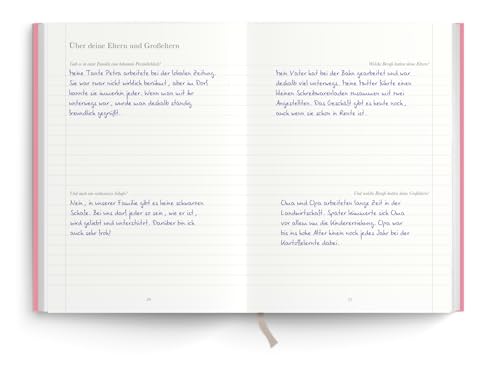 Über deine Eltern und Großeltern
Gab es in eurer Familie eine bekannte Persönlichkeit?
Meine Tante Petra arbeitete bei der lokalen Zeitung.
Sie war zwar nicht wirklich berühmt, aber im Dorf
kannte sie immerhin jeder. Wenn man mit ihr
unterwegs war, wurde man deshalb ständig
freundlich gegrüßt.
Und auch ein schwarzes Schaf?
Nein, in unserer Familie gibt es keine schwarzen
Schafe. Bei uns darf jeder so sein, wie er ist,
und wird geliebt und unterstützt. Darüber bin ich
auch sehr froh!
Welche Berufe hatten deine Eltern?
Mein Vater hat bei der Bahn gearbeitet und war
deshalb viel unterwegs. Meine Mutter führte einen
kleinen Schreibwarenladen zusammen mit zwei
Angestellten. Das Geschäft gibt es heute noch,
auch wenn sie schon in Rente ist.
Und welche Berufe hatten deine Großeltern?
Oma und Opa arbeiteten lange Zeit in der
Landwirtschaft. Später kümmerte sich Oma
vor allem um die Kindererziehung. Opa war
bis ins hohe Alter hinein noch jedes Jahr bei der
Kartoffelernte dabei.